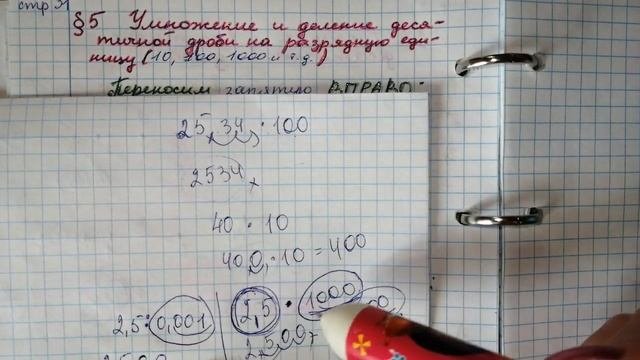 стр 31
§5 Умножение и деление деся-
тичной дроби на разрядную еди-
ницу (10, 100, 1000 и т.д.)
Переносим запятую ВПРАВО:
25,34, · 100
2534,
40 · 10
40,0, · 10 = 400
2,5 : 0,001 | 2,5 · 1000
2,500,